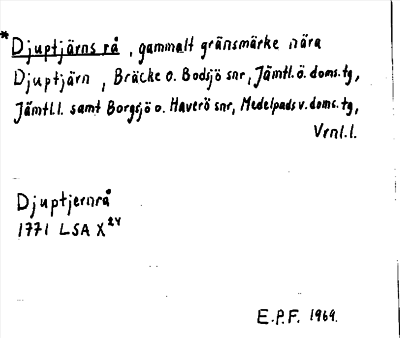 *Djuptjärns rå, gammalt gränsmärke nära
Djuptjärn, Bräcke o. Bodsjö snr, Jämtl. ö. doms. tg,
Jämtl.l. samt Borgsjö o. Haverö snr, Medelpads v. doms. tg,
Vrnl.l.
Djuptjernrå
1771 LSA X24
E.P.F. 1969.